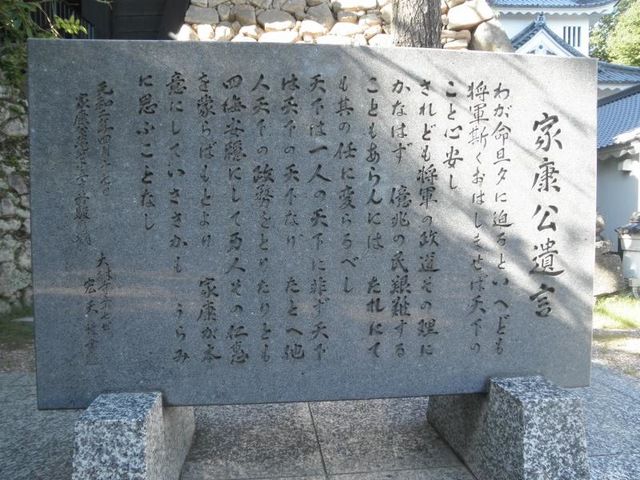 家康公遺言
わが命旦夕に迫るといへども
将軍斯くおはしませば天下の
こと心安し
されども将軍の政道その理に
かなはず 億兆の民艱難する
こともあらんには たれにて
も其の任に変らるべし
天下は一人の天下に非ず天下
は天下の天下なり たとへ他
人天下の政務をとりたりとも
四海安穏にして万人その仁恵
を蒙らばもとより 家康が本
意にしていささかも うらみ
に思ふことなし
元和二年四月十七日
家康